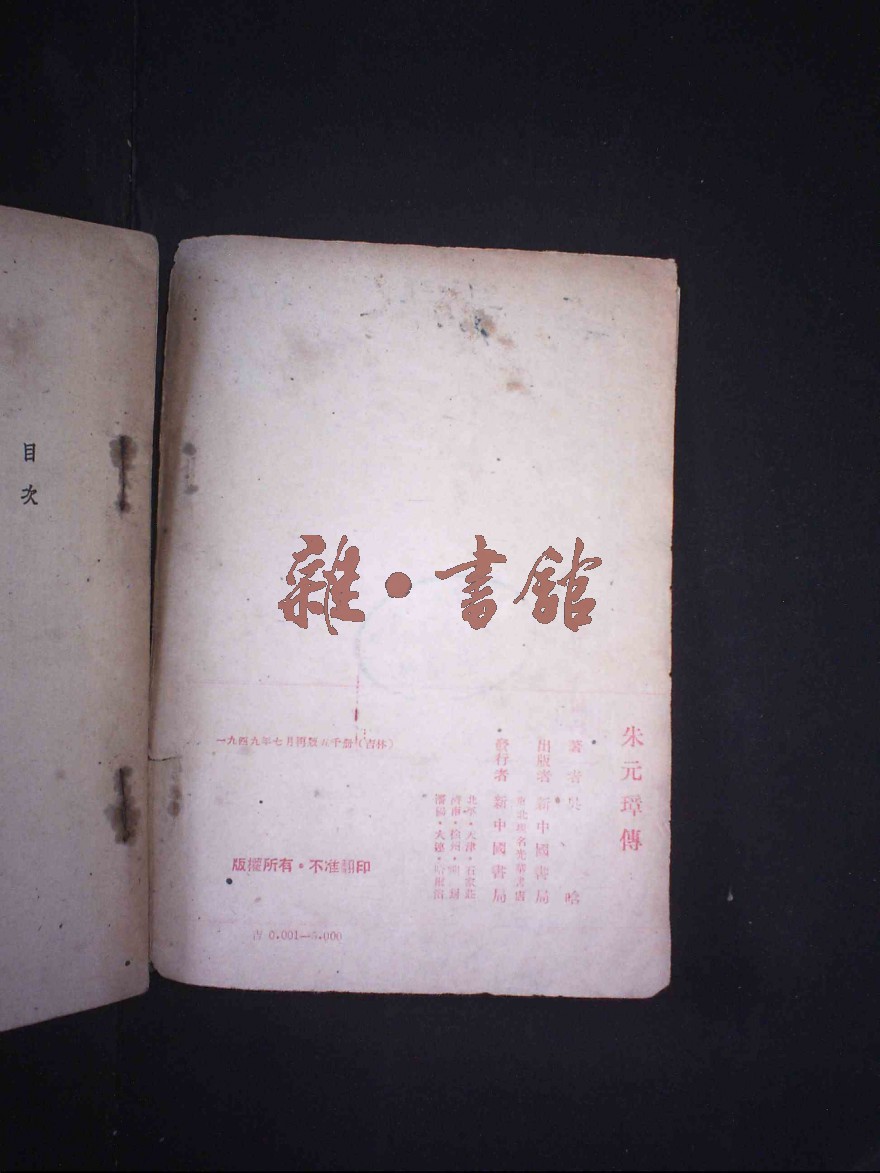 目次
雜·書館
朱元璋傳
著者 吳晗
出版者 新中國書局
東北區名光華書店
發行者 新中國書局
北平·天津·石家莊
濟南·徐州·開封
瀋陽·大連·哈爾濱
一九四九年七月再版五千册(吉林)
版權所有·不准翻印
吉 0.001—5.000